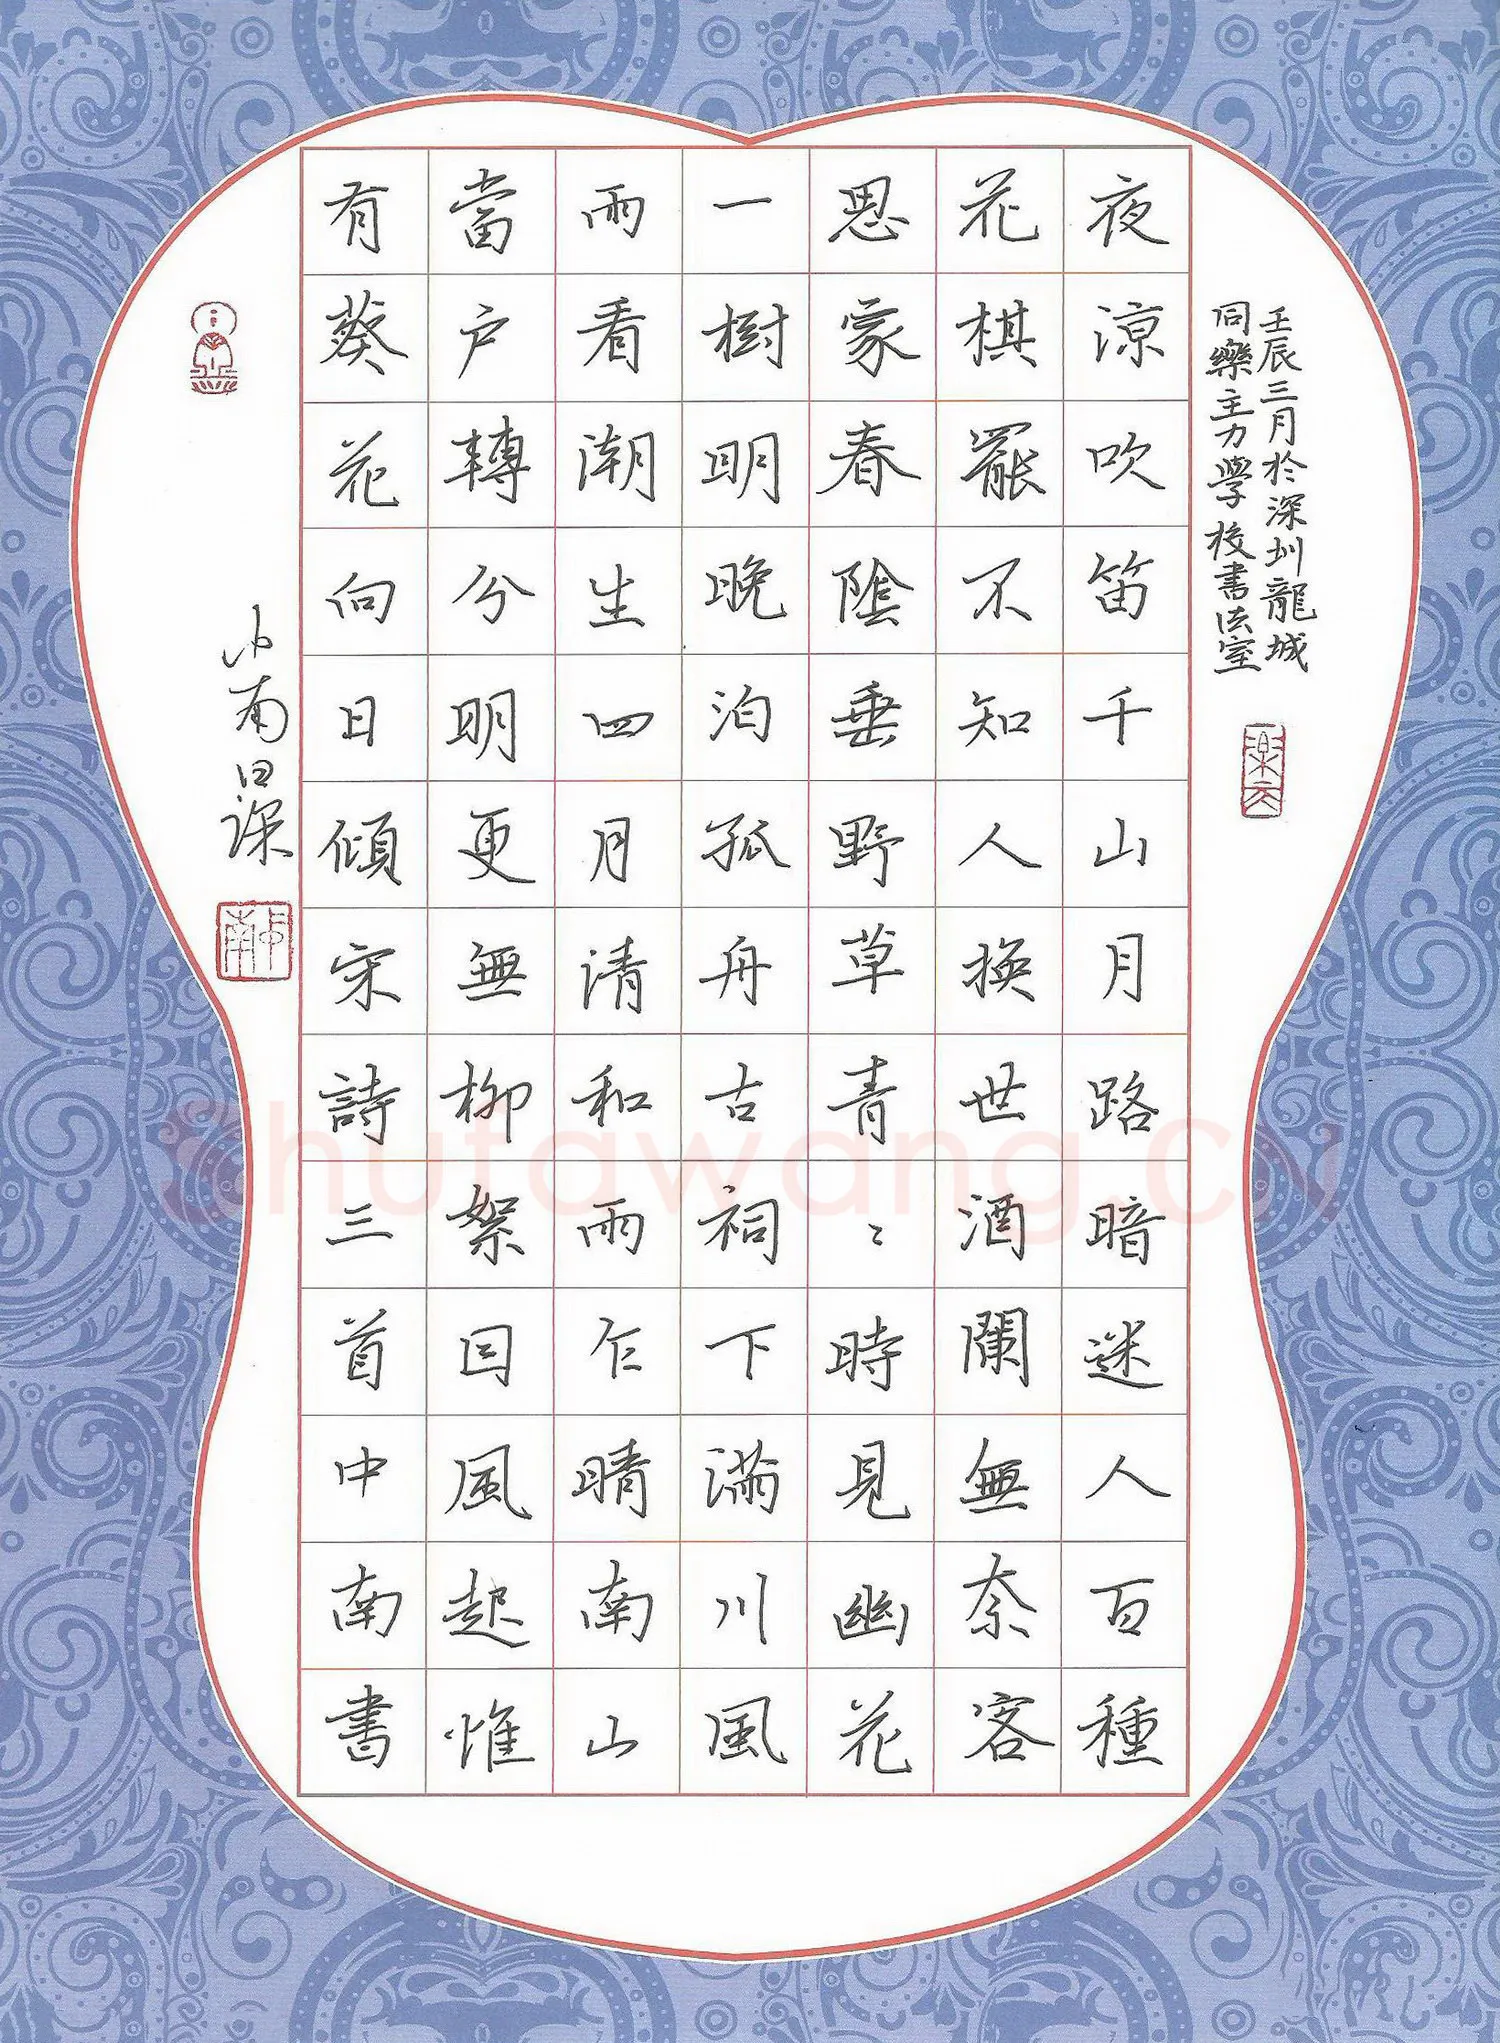 壬辰三月於深圳龍城
同樂主力學校書法室
夜涼吹笛千山月路暗迷人百種
花棋罷不知人換世酒闌無奈客
思家春陰垂野草青〻時見幽花
一樹明晚泊孤舟古祠下滿川風
雨看潮生四月清和雨乍晴南山
當户轉分明更無柳絮因風起惟
有葵花向日傾宋詩三首中南書
中南日课
中南
Shufawang.CN